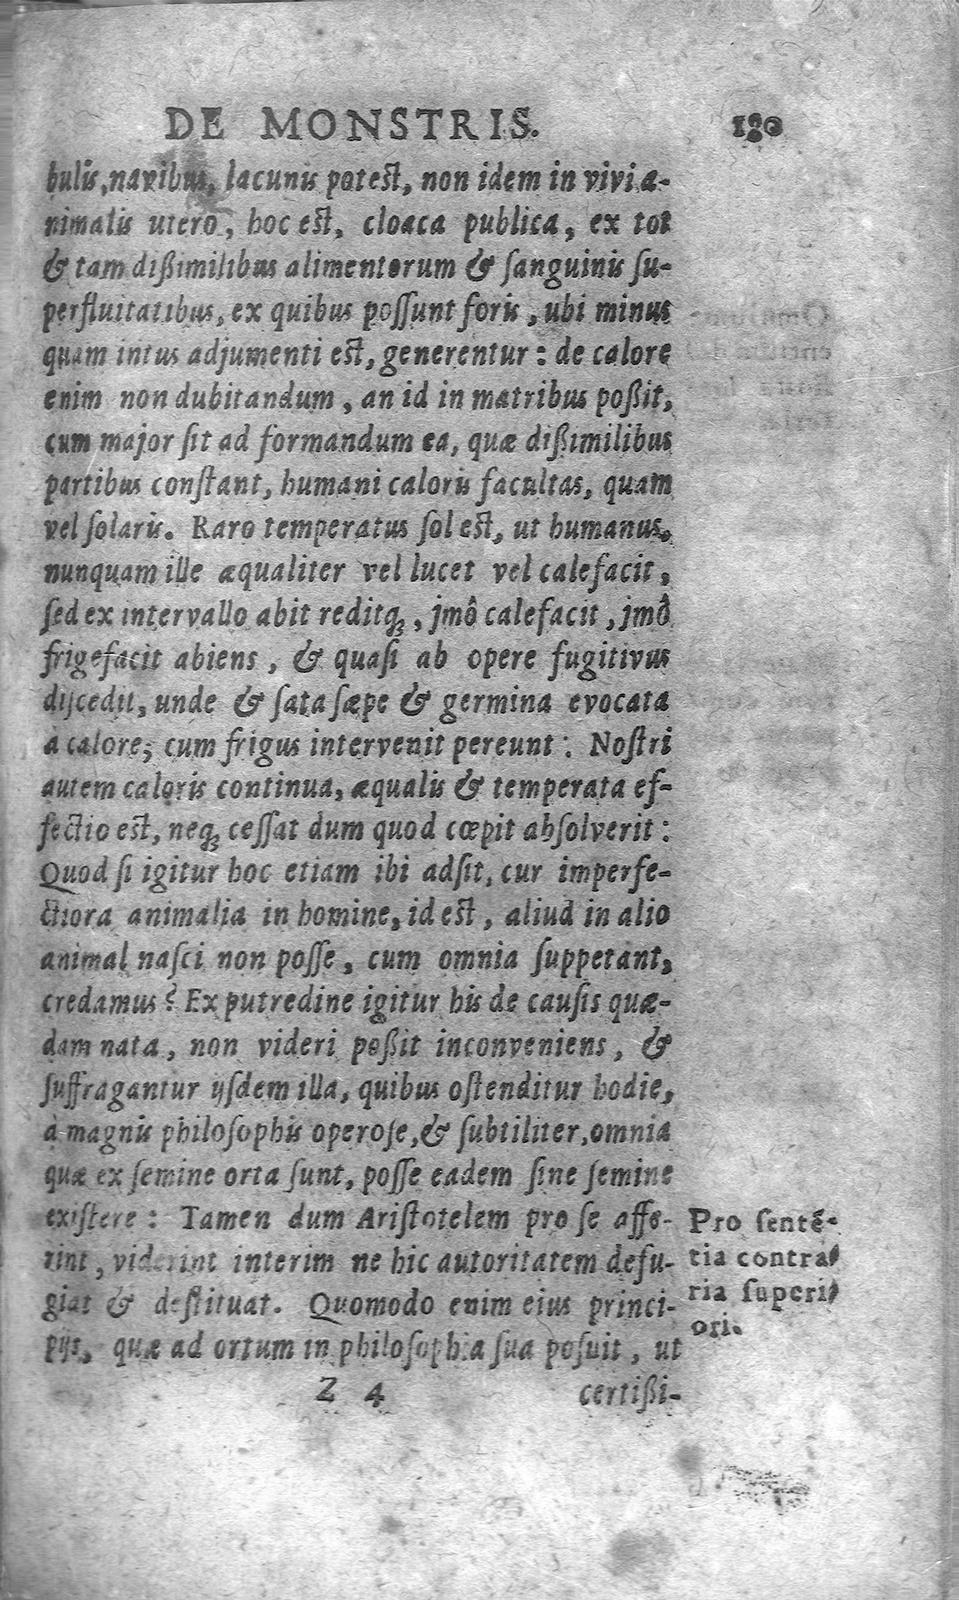 DE MONSTRIS. 180
bulis, navibus, lacunis potest, non idem in vivi a-
nimalis utero, hoc est, cloaca publica, ex tot
& tam dißimilibus alimentorum & ſanguinis ſu-
perfluitatibus, ex quibus poſſunt foris, ubi minus
quam intus adjumenti est, generentur: de calore
enim non dubitandum, an id in matribus poßit,
cum major ſit ad formandum ea, quæ dißimilibus
partibus conſtant, humani caloris facultas, quam
vel ſolaris. Raro temperatus ſol est, ut humanus,
nunquam ille æqualiter vel lucet vel calefacit,
ſed ex intervallo abit reditq;, jmô calefacit, jmô
frigefacit abiens, & quaſi ab opere fugitivus
diſcedit, unde & ſata ſæpe & germina evocata
a calore, cum frigus intervenit pereunt: Noſtri
autem caloris continua, æqualis & temperata ef-
fectio est, neq; ceſſat dum quod cœpit abſolverit:
Quod ſi igitur hoc etiam ibi adſit, cur imperfe-
ctiora animalia in homine, id est, aliud in alio
animal naſci non poſſe, cum omnia ſuppetant,
credamus? Ex putredine igitur his de cauſis quæ-
dam nata, non videri poßit inconveniens, &
ſuffragantur ijſdem illa, quibus oſtenditur hodie,
à magnis philoſophis operoſe, & ſubtiliter, omnia
quæ ex ſemine orta ſunt, poſſe eadem ſine ſemine
exiſtere: Tamen dum Ariſtotelem pro ſe aſſe-
rint, viderint interim ne hic autoritatem defu-
giat & deſtituat. Quomodo enim eius princi-
pijs, quæ ad ortum in philoſophia ſua poſuit, ut
Z 4 certißi-
Pro ſentẽ-
tia contra
ria ſuperi
ori.